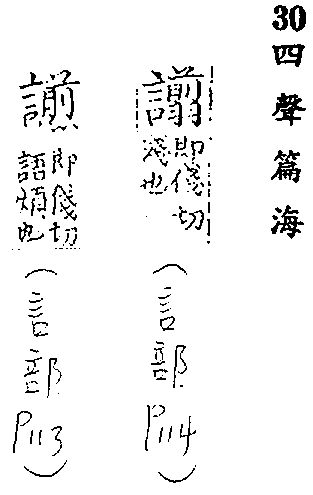 30四聲篇海
謭
即俴切
淺也
(言部P114)
即俴切
語煩也
(言部P113)